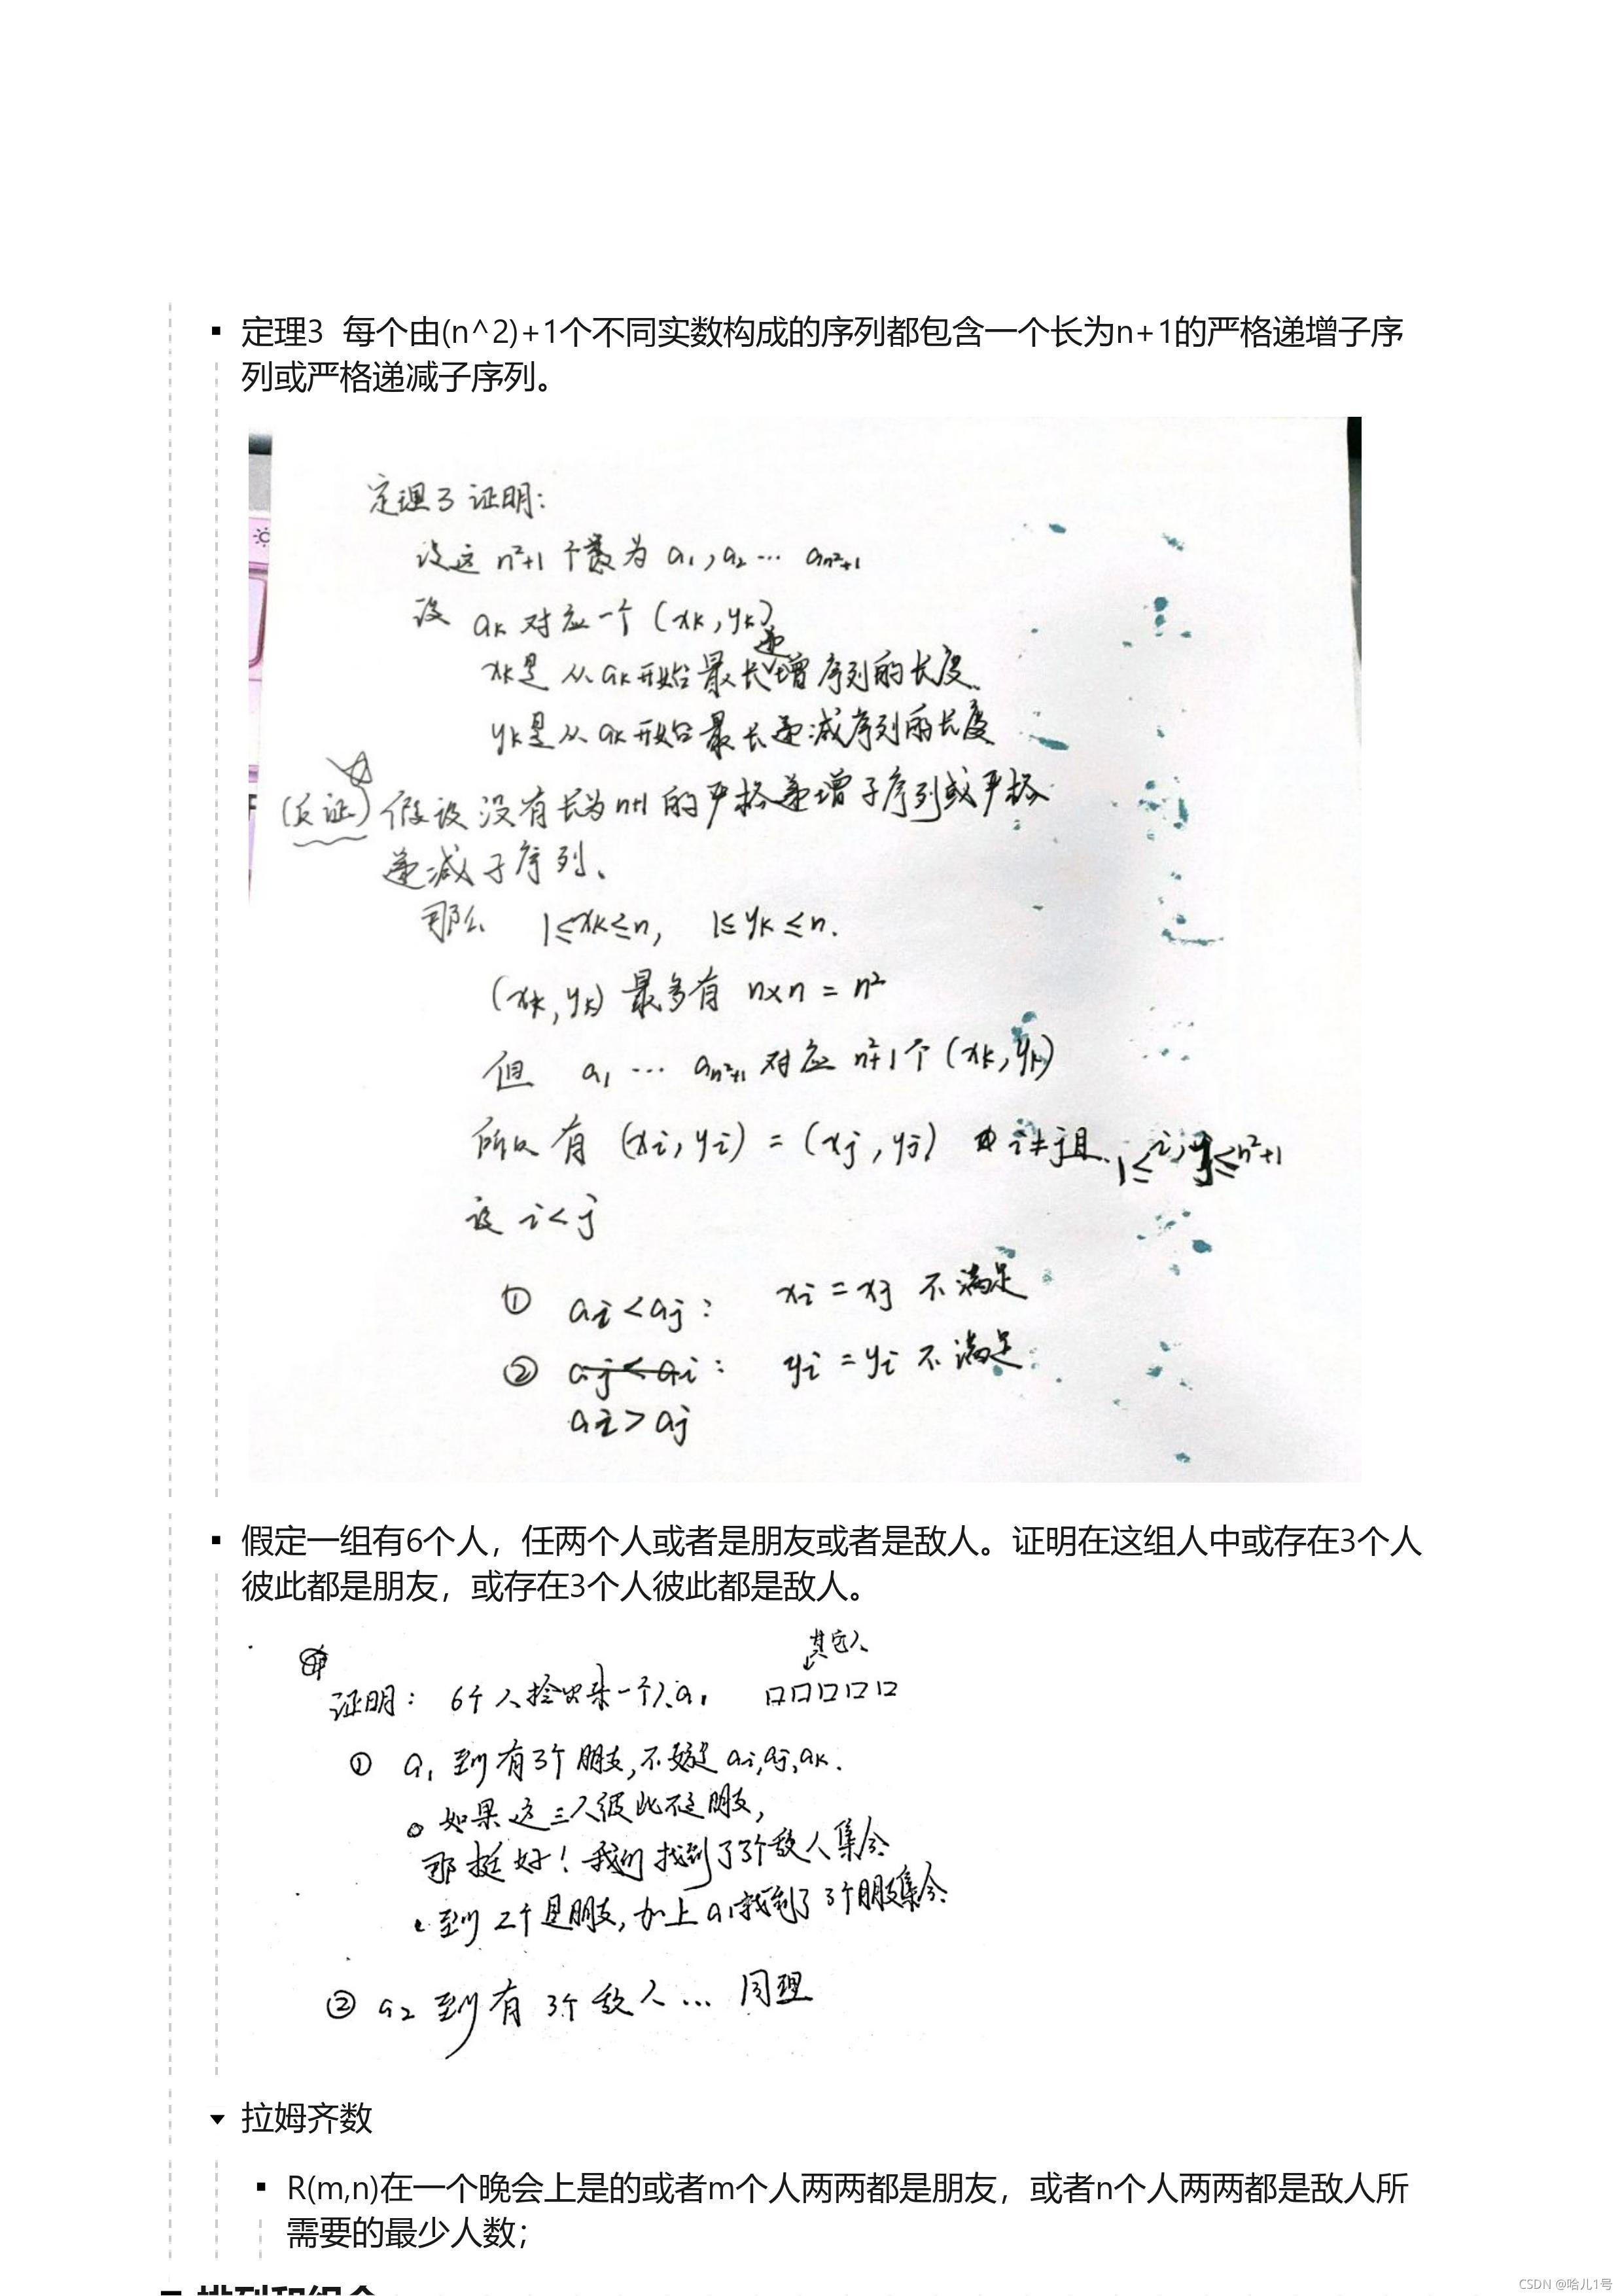 定理3 每个由(n^2)+1个不同实数构成的序列都包含一个长为n+1的严格递增子序
列或严格递减子序列。
定理3 证明：
设这 n²+1 个数为 a₁, a₂ … aₙ²₊₁
设 aₖ 对应一个 (xₖ, yₖ)
xₖ是 从aₖ开始最长递增序列的长度.
yₖ是从aₖ开始最长递减序列的长度
(反证) 假设没有长为n+1的严格递增子序列或严格
递减子序列、
那么 1≤xₖ≤n, 1≤yₖ≤n.
(xₖ, yₖ) 最多有 n×n = n²
但 a₁ … aₙ²₊₁ 对应 n²+1个 (xₖ, yₖ)
所以有 (xᵢ, yᵢ) = (xⱼ, yⱼ) i≠j且 1≤i, j≤n²+1
设 i<j
① aᵢ<aⱼ: xᵢ = xⱼ 不满足
② aⱼ<aᵢ: yᵢ = yᵢ 不满足
aᵢ>aⱼ
假定一组有6个人，任两个人或者是朋友或者是敌人。证明在这组人中或存在3个人
彼此都是朋友，或存在3个人彼此都是敌人。
其它人
证明： 6个人捡出来一个人a₁ 口口口口口
① a₁ 至少有3个朋友,不妨是 aᵢ,aⱼ,aₖ.
如果这三人彼此不是朋友,
那挺好！我们找到了3个敌人集合
至少2个是朋友,加上a₁找到了3个朋友集合
② a₂ 至少有 3个敌人… 同理
拉姆齐数
R(m,n)在一个晚会上是的或者m个人两两都是朋友，或者n个人两两都是敌人所
需要的最少人数；
排列和组合
CSDN @哈儿1号